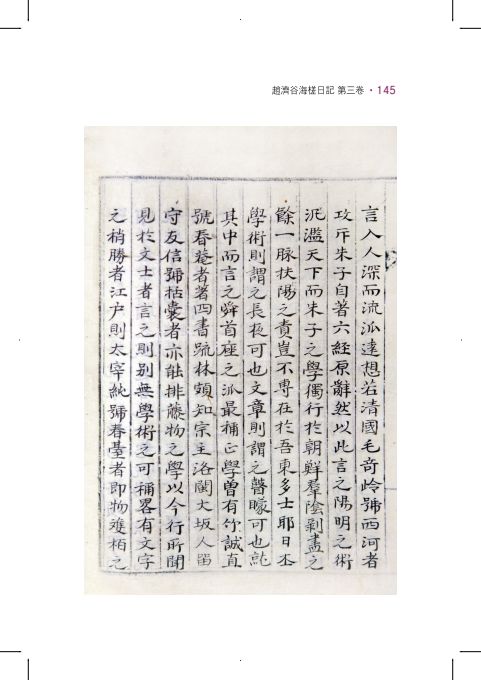 趙濟谷海槎日記 第三卷 · 145
言入人深而流派遠想若清國毛奇岭號西河者
攻斥朱子自著六經原辭然以此言之陽明之術
汎濫天下而朱子之學獨行於朝鮮羣陰剝盡之
餘一脉扶陽之責豈不專在於吾東多士耶日本
學術則謂之長夜可也文章則謂之瞽矇可也就
其中而言之舜首座之派最稱正學曾有竹誠直
號春菴者著四書䟽林頗知宗主洛閩大坂人留
守友信號括囊者亦能排藤物之學以今行所聞
見於文士者言之則別無學術之可稱畧有文字
之稍勝者江戶則太宰純號春臺者即物雙栢之